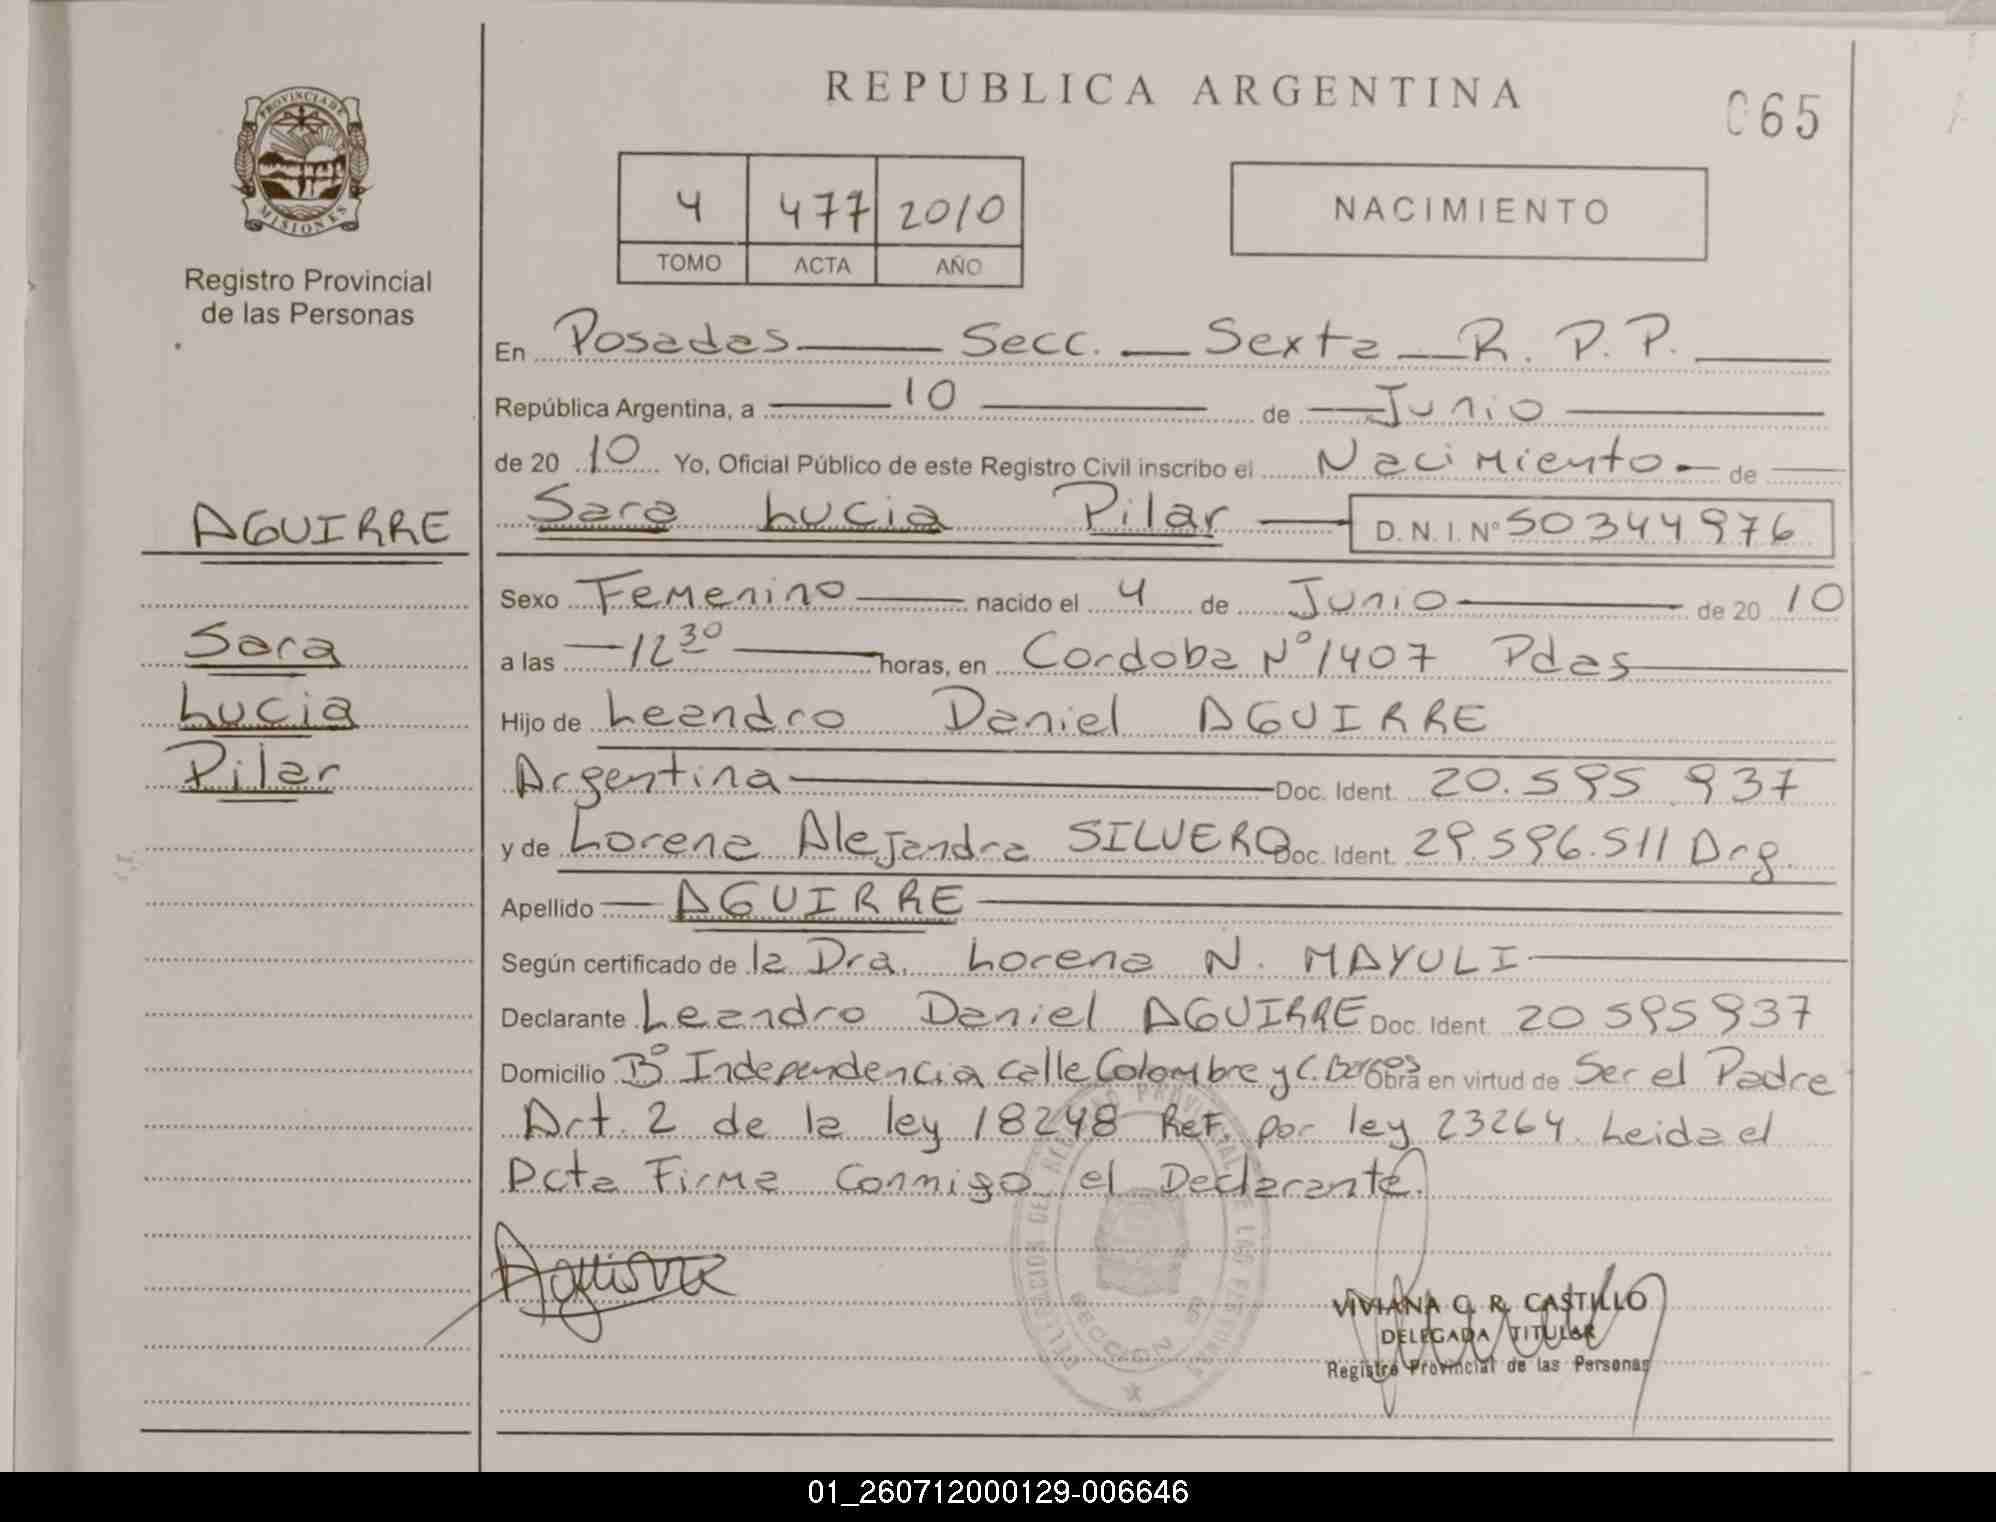 REPUBLICA ARGENTINA
065
PROVINCIA DE
MISIONES
Registro Provincial
de las Personas
4 477 2010
TOMO ACTA AÑO
NACIMIENTO
En Posadas Secc. Sexta R. P. P.
República Argentina, a 10 de Junio
de 20 10 Yo, Oficial Público de este Registro Civil inscribo el Nacimiento de
Sara Lucia Pilar D. N. I. Nº 50344976
AGUIRRE
Sara
Lucia
Pilar
Sexo Femenino nacido el 4 de Junio de 20 10
a las 12 30 horas, en Cordoba Nº 1407 Pdas
Hijo de Leandro Daniel AGUIRRE
Argentina Doc. Ident. 20.595.937
y de Lorena Alejandra SILVERO Doc. Ident. 29.596.511 Arg.
Apellido AGUIRRE
Según certificado de la Dra. Lorena N. MAYULI
Declarante Leandro Daniel AGUIRRE Doc. Ident. 20595937
Domicilio Bº Independencia calle Colombre y C. Borges Obra en virtud de Ser el Padre
Art. 2 de la ley 18248 Ref. por ley 23264. Leida el
Acta Firma Conmigo el Declarante.
Aguirre
VIVIANA C. R. CASTILLO
DELEGADA TITULAR
Registro Provincial de las Personas
01_260712000129-006646